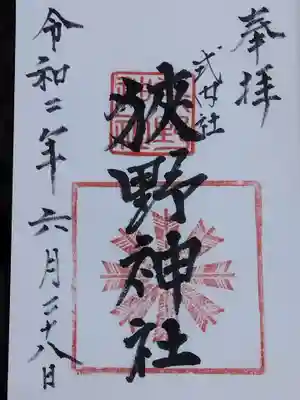 奉拝
式内社
狭野神社
令和二年六月二十八日